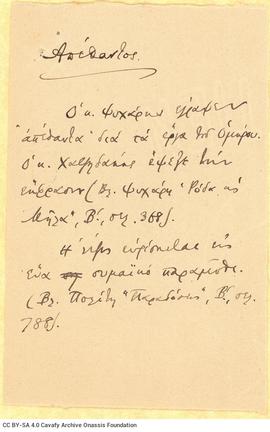 Απέθαντος.
Ο κ. Ψυχάρης έγραψεν
"απέθαντα" διά τα έργα του Ομήρου.
Ο κ. Χατζηδάκις έψεξε την
έκφρασιν (Βλ. Ψυχάρη "Ρόδα και
Μήλα", Β', σελ. 368).
Η λέξις ευρίσκεται εις
ένα ρωμαίικο παραμύθι.
(Βλ. Πολίτη "Παραδόσεις", Β', σελ.
788).
CC BY-SA 4.0 Cavafy Archive Onassis Foundation